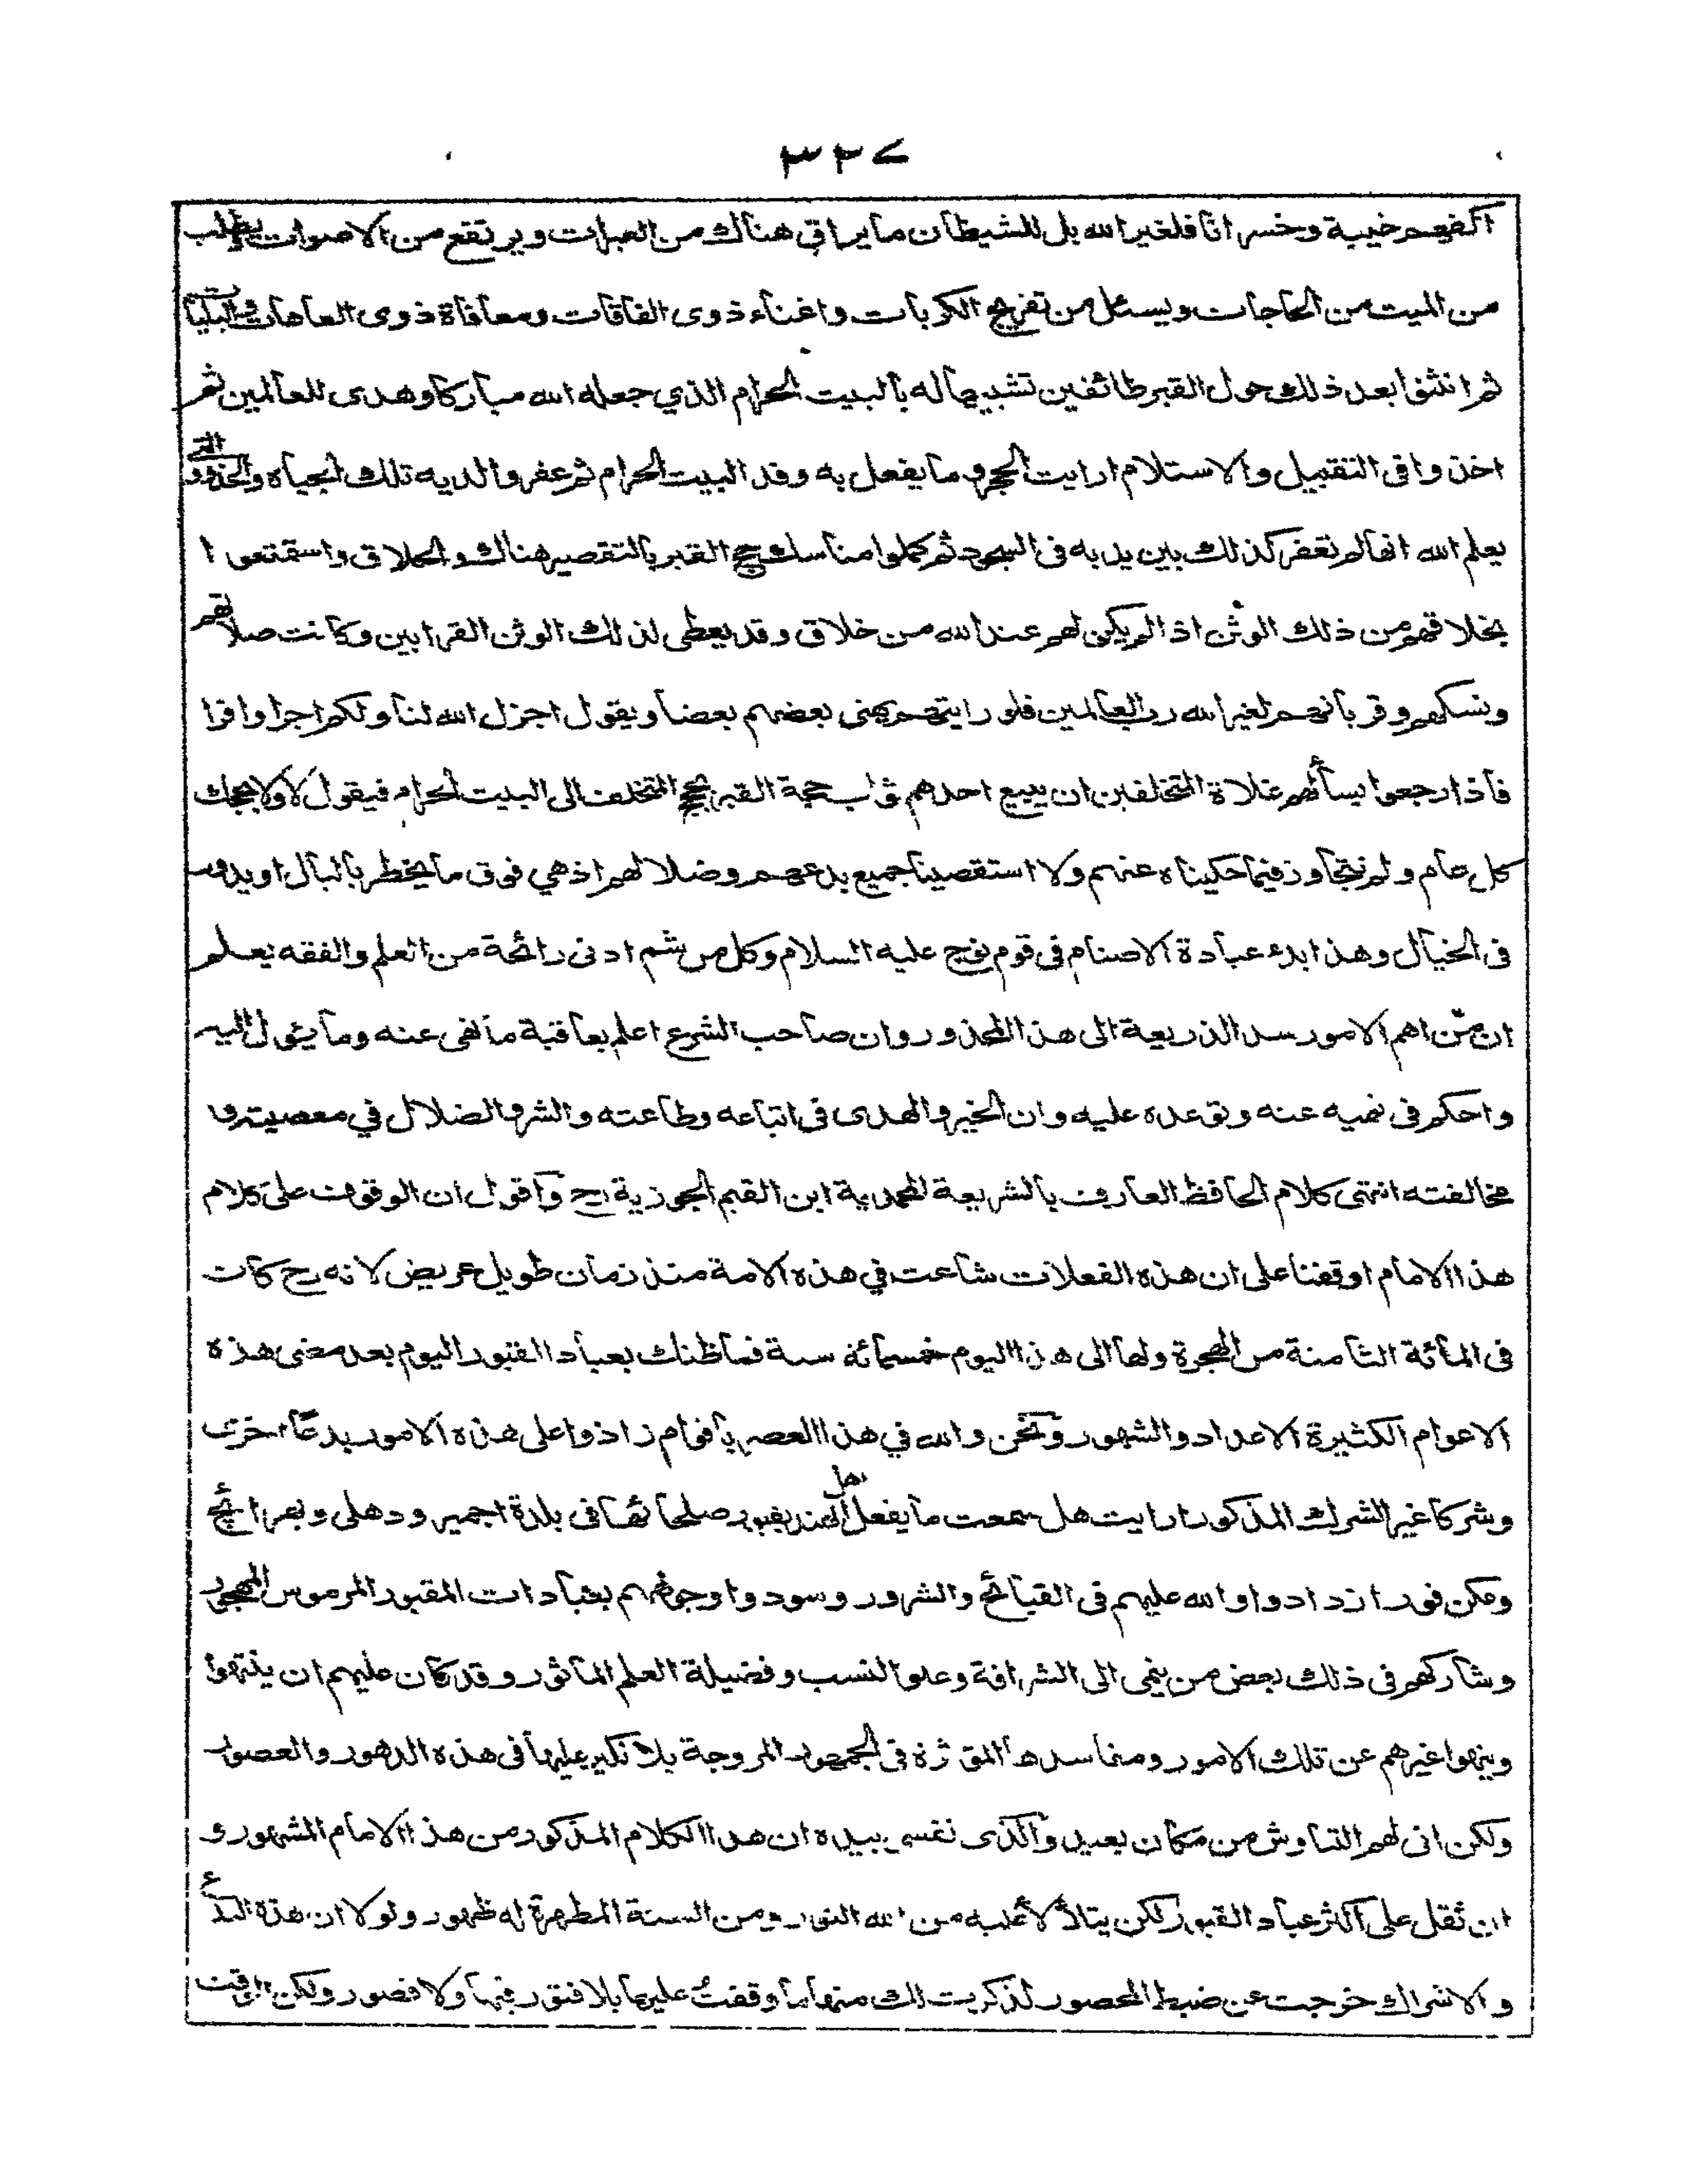 ٣٢٧
اكفهم خيبة وخسرانا فلغير الله بل للشيطان ما يراق هناك من العبرات ويرتفع من الاصوات ويطلب
من الميت من الحاجات ويسئل من تفريج الكربات واغناء ذوى الفاقات ومعافاة ذوى العاهات والبليات
ثم انثنوا بعد ذلك حول القبر طائفين تشبيها له بالبيت الحرام الذي جعله الله مباركا وهدى للعالمين ثم
اخذوا فى التقبيل والاستلام ارايت الحجر وما يفعل به وفد البيت الحرام ثم عفروا لديه تلك الجباه والخدود التى
يعلم الله انها لم تعفر كذلك بين يديه فى السجود ثم كملوا مناسك حج القبر بالتقصير هناك والحلاق واستمتعوا
بخلاقهم من ذلك الوثن اذ لم يكن لهم عند الله من خلاق وقد يعطى لذلك الوثن القرابين وكانت صلاتهم
ونسكهم وقربانهم لغير الله رب العالمين فلو رايتهم يهنى بعضهم بعضا ويقول اجزل الله لنا ولكم اجرا وافرا
فاذا رجعوا يسألهم غلاة المتخلفين ان يبيع احدهم ثواب حجة القبر بحج المتخلف الى البيت الحرام فيقول لا ولا بحجك
كل عام ولم نتجاوز فيما حكيناه عنهم ولا استقصينا جميع بدعهم وضلالهم اذ هي فوق ما يخطر بالبال او يدور
فى الخيال وهذا بدء عبادة الاصنام فى قوم نوح عليه السلام وكل من شم ادنى رائحة من العلم والفقه يعلم
ان من اهم الامور سد الذريعة الى هذا المحذور وان صاحب الشرع اعلم بعاقبة ما نهى عنه وما يئول اليه
واحكم فى نهيه عنه وتوعده عليه وان الخير والهدى فى اتباعه وطاعته والشر والضلال في معصيته و
مخالفته انتهى كلام الحافظ العارف بالشريعة المحمدية ابن القيم الجوزية رح واقول ان الوقوف على كلام
هذا الامام اوقفنا على ان هذه الفعلات شاعت في هذه الامة منذ زمان طويل عريض لانه رح كان
فى المائة الثامنة من الهجرة ولها الى هذا اليوم خمسمائة سنة فما ظنك بعباد القبور اليوم بعد مضى هذه
الاعوام الكثيرة الاعداد والشهور ونحن والله في هذا العصر باقوام زادوا على هذه الامور بدعا اخرى
وشركا غير الشرك المذكور ارايت هل سمعت ما يفعل اهل الهند بقبور صلحائها فى بلدة اجمير ودهلى وبهرائج
ومكن فور ازدادوا والله عليهم فى القبائح والشرور وسودوا وجوههم بعبادات المقبور المرموس المهجور
وشاركهم فى ذلك بعض من ينمى الى الشرافة وعلو النسب وفضيلة العلم الماثور وقد كان عليهم ان ينتهوا
وينهوا غيرهم عن تلك الامور ومفاسدها المؤثرة فى الجمهور المروجة بلا نكير عليها فى هذه الدهور والعصور
ولكن انى لهم التناوش من مكان بعيد والذى نفسي بيده ان هذا الكلام المذكور من هذا الامام المشهور و
ان ثقل على اكثر عباد القبور لكن يتلألأ عليه من الله النور ومن السنة المطهرة له ظهور ولولا ان هذه البدع
والاشراك خرجت عن ضبط المحصور لذكرت لك منها ما وقفت عليها بلا فتور فيها ولا قصور ولكن الوقت